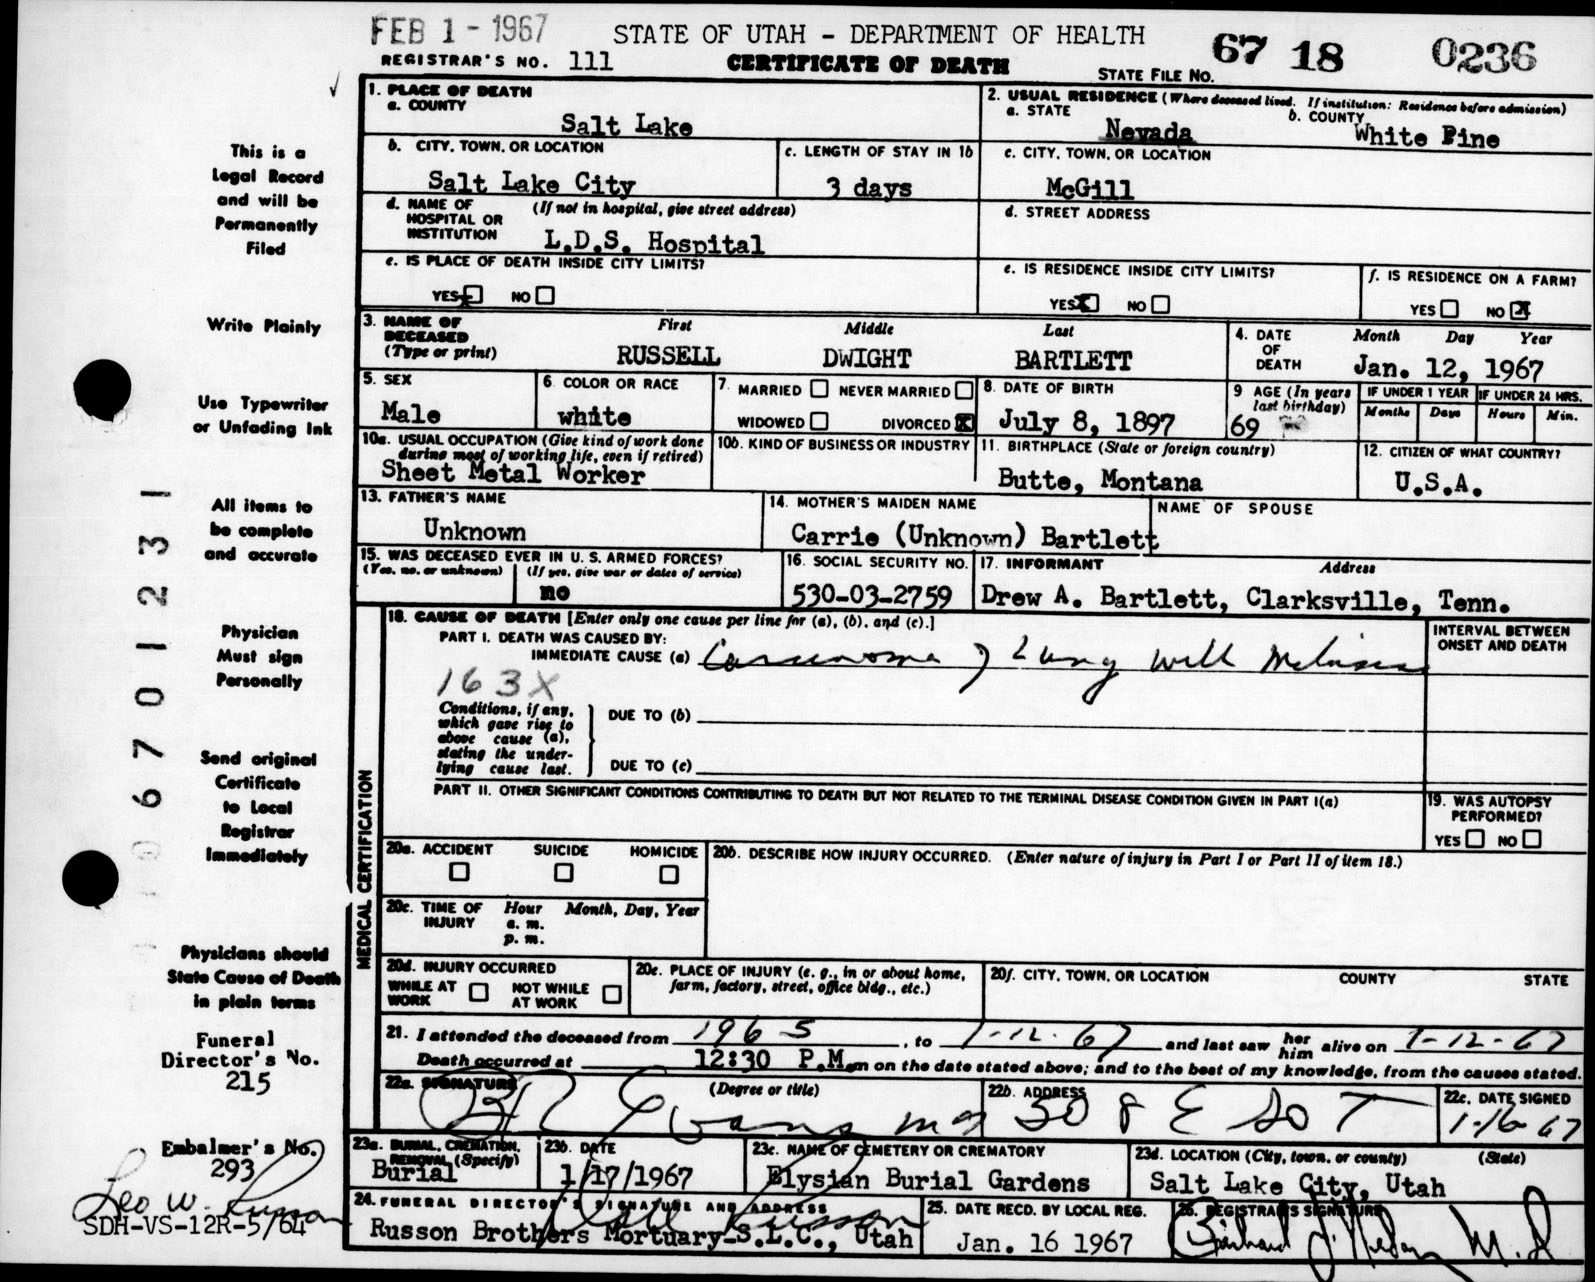 FEB 1 - 1967
STATE OF UTAH - DEPARTMENT OF HEALTH
67 18 0236
REGISTRAR'S NO. 111
CERTIFICATE OF DEATH
STATE FILE NO.
This is a
Legal Record
and will be
Permanently
Filed
Write Plainly
Use Typewriter
or Unfading Ink
All items to
be complete
and accurate
Physician
Must sign
Personally
Send original
Certificate
to Local
Registrar
Immediately
Physicians should
State Cause of Death
in plain terms
Funeral
Director's No.
215
Embalmer's No.
293
Leo W. Russon
SDH-VS-12R-5/64
0 6 7 0 1 2 3 1
1. PLACE OF DEATH
a. COUNTY
Salt Lake
2. USUAL RESIDENCE (Where deceased lived. If institution: Residence before admission)
a. STATE
Nevada
b. COUNTY
White Pine
b. CITY, TOWN, OR LOCATION
Salt Lake City
c. LENGTH OF STAY IN 1b
3 days
c. CITY, TOWN, OR LOCATION
McGill
d. NAME OF HOSPITAL OR INSTITUTION
(If not in hospital, give street address)
L.D.S. Hospital
d. STREET ADDRESS
e. IS PLACE OF DEATH INSIDE CITY LIMITS?
YES X NO
e. IS RESIDENCE INSIDE CITY LIMITS?
YES X NO
f. IS RESIDENCE ON A FARM?
YES NO X
3. NAME OF DECEASED
(Type or print)
First Middle Last
RUSSELL DWIGHT BARTLETT
4. DATE OF DEATH
Month Day Year
Jan. 12, 1967
5. SEX
Male
6. COLOR OR RACE
white
7. MARRIED NEVER MARRIED
WIDOWED DIVORCED X
8. DATE OF BIRTH
July 8, 1897
9 AGE (In years last birthday)
69
IF UNDER 1 YEAR
Months Days
IF UNDER 24 HRS.
Hours Min.
10a. USUAL OCCUPATION (Give kind of work done
during most of working life, even if retired)
Sheet Metal Worker
10b. KIND OF BUSINESS OR INDUSTRY
11. BIRTHPLACE (State or foreign country)
Butte, Montana
12. CITIZEN OF WHAT COUNTRY?
U.S.A.
13. FATHER'S NAME
Unknown
14. MOTHER'S MAIDEN NAME
Carrie (Unknown) Bartlett
NAME OF SPOUSE
15. WAS DECEASED EVER IN U. S. ARMED FORCES?
(Yes, no, or unknown) (If yes, give war or dates of service)
no
16. SOCIAL SECURITY NO.
530-03-2759
17. INFORMANT Address
Drew A. Bartlett, Clarksville, Tenn.
MEDICAL CERTIFICATION
18. CAUSE OF DEATH [Enter only one cause per line for (a), (b), and (c).]
PART I. DEATH WAS CAUSED BY:
IMMEDIATE CAUSE (a) Carcinoma of Lung with
INTERVAL BETWEEN
ONSET AND DEATH
163X
Conditions, if any,
which gave rise to
above cause (a),
stating the under-
lying cause last.
DUE TO (b)
DUE TO (c)
PART II. OTHER SIGNIFICANT CONDITIONS CONTRIBUTING TO DEATH BUT NOT RELATED TO THE TERMINAL DISEASE CONDITION GIVEN IN PART I(a)
19. WAS AUTOPSY
PERFORMED?
YES NO
20a. ACCIDENT SUICIDE HOMICIDE
20b. DESCRIBE HOW INJURY OCCURRED. (Enter nature of injury in Part I or Part II of item 18.)
20c. TIME OF INJURY
Hour Month, Day, Year
a. m.
p. m.
20d. INJURY OCCURRED
WHILE AT WORK NOT WHILE AT WORK
20e. PLACE OF INJURY (e. g., in or about home,
farm, factory, street, office bldg., etc.)
20f. CITY, TOWN, OR LOCATION COUNTY STATE
21. I attended the deceased from 1965, to 1-12-67 and last saw her him alive on 1-12-67
Death occurred at 12:30 P.M. m on the date stated above; and to the best of my knowledge, from the causes stated.
22a. SIGNATURE (Degree or title)
Evans MD
22b. ADDRESS
508 E So T
22c. DATE SIGNED
1-16-67
23a. BURIAL, CREMATION,
REMOVAL (Specify)
Burial
23b. DATE
1/17/1967
23c. NAME OF CEMETERY OR CREMATORY
Elysian Burial Gardens
23d. LOCATION (City, town, or county) (State)
Salt Lake City, Utah
24. FUNERAL DIRECTOR'S SIGNATURE AND ADDRESS
Russon Brothers Mortuary-S.L.C., Utah
25. DATE RECD. BY LOCAL REG.
Jan. 16 1967
26. REGISTRAR'S SIGNATURE
M.D